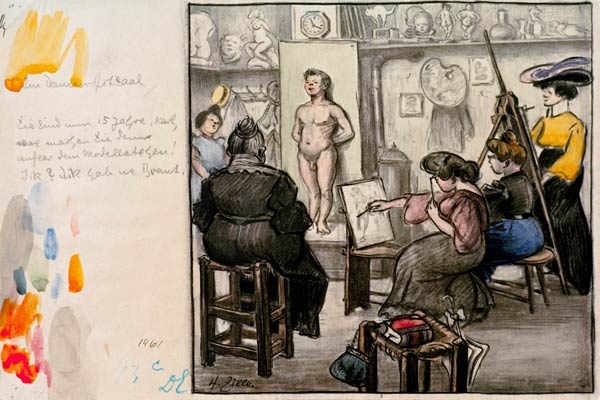 Damen-Aktsaal
Sie sind nun 15 Jahre, Karl,
was machen Sie denn
ausser dem Modellstehen!
Ick? Ick hab ne Braut.
1461
13 c
H. Zille.